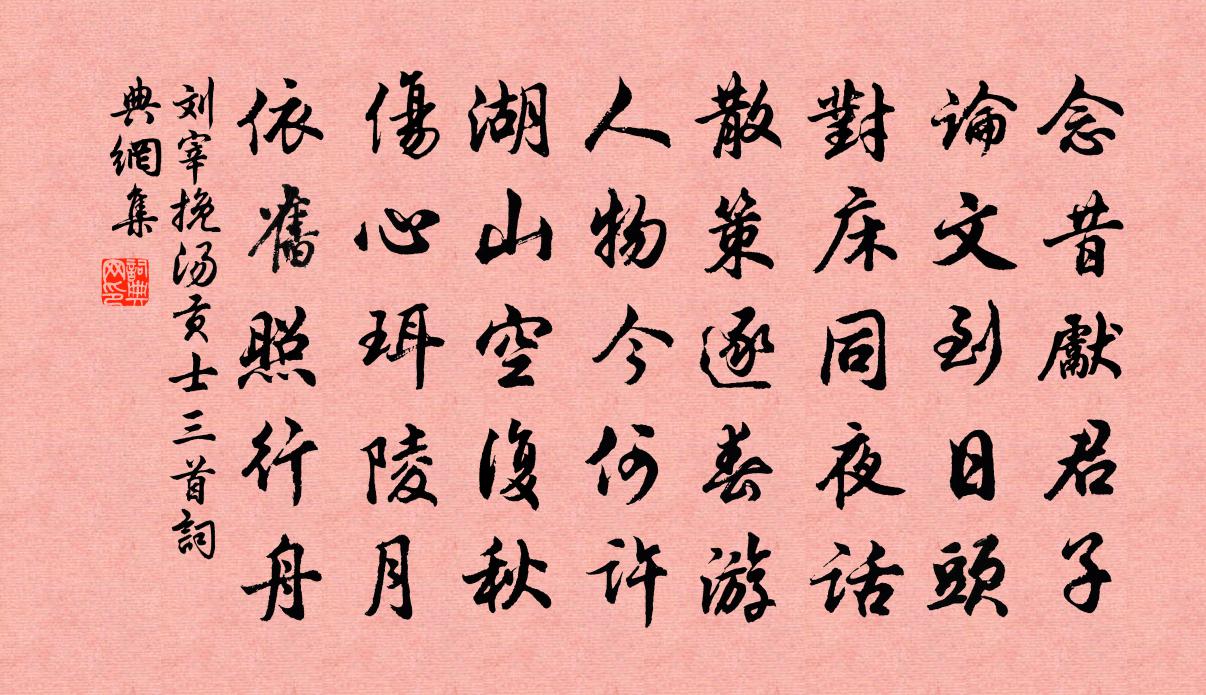 念昔獻君子
論文到日頭
對床同夜話
散策逐春游
人物今何許
湖山空復秋
傷心珥陵月
依舊照行舟
刘宰挽汤贡士三首詞
典網集
詞典网印